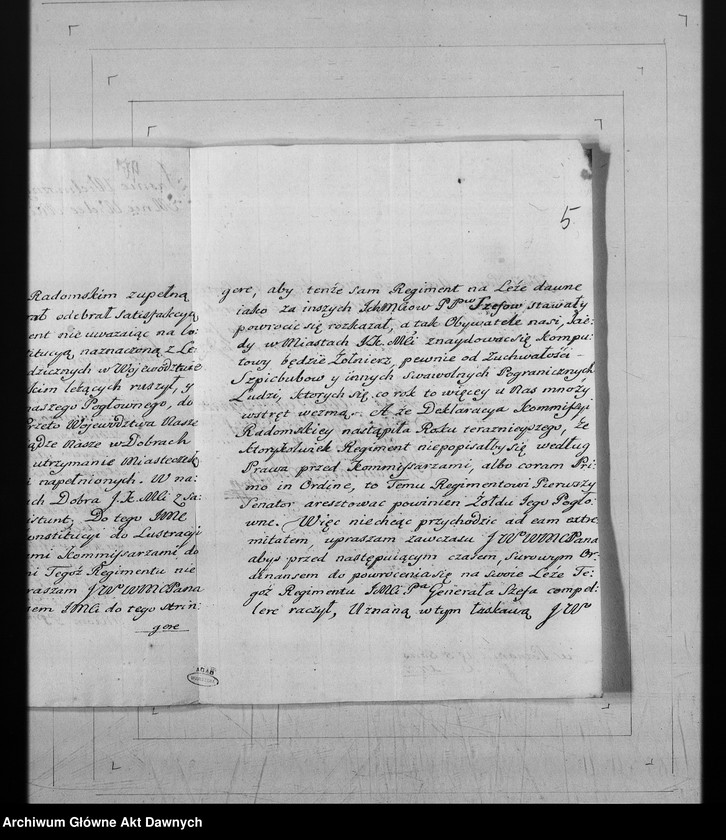 Radomskim zupełną
odebrał Satisfakcyą
ent nie uważaiąc na lo:
titucyą naznaczoną z Le
dzicznych w Woiewodztwie
skim leżących ruszył, y
naszego Pogłownego, do
Przeto Woiewodztwa Nasze
ądze Nasze w Dobrach
utrzymanie Miasteczek
i napełnionych. W na:
ch Dobra J. K. Mci z Sa:
istunt. Do tego JMć
onstitucyi do Lustracyi
emi Kommissarzami do
ni Tegoż Regimentu nie
raszam J W WMC Pana
sem JMci do tego strin:
gere
5
gere, aby tenże sam Regiment na Leże dawne
iako za inszych Ichmciow PPow Szefow stawały
powrocić się rozkazał, a tak Obywatele nasi, kie:
dy w Miastach JK. Mci znaydować się kompu:
towy będzie Żołnierz, pewnie od Zuchwałości
Szpicbubow y innych Swawolnych Pogranicznych
Ludzi, ktorych się co rok to więcey u Nas mnoży
wstręt wezmą. A że Deklaracya Kommissyi
Radomskiey nastąpiła Roku terazniejszego, że
ktorykolwiek Regiment niepopisałby się według
Prawa przed Kommissarzami, albo coram Pri:
mo in Ordine, to Temu Regimentowi Pierwszy
Senator aresztować powinien Żołdu Jego Pogło:
wne. Więc niechcąc przychodzić ad eam extre
mitatem upraszam zawczasu J W WMC Pana
abyś przed następuiącym czasem, Surowym Or:
dinansem do powrócenia się na Swoie Leże Te:
goż Regimentu JMci Pa Generała Szefa compel:
lere raczył, Uznaną w tym łaskawą J W
AGAD
WARSZAWA
Archiwum Główne Akt Dawnych